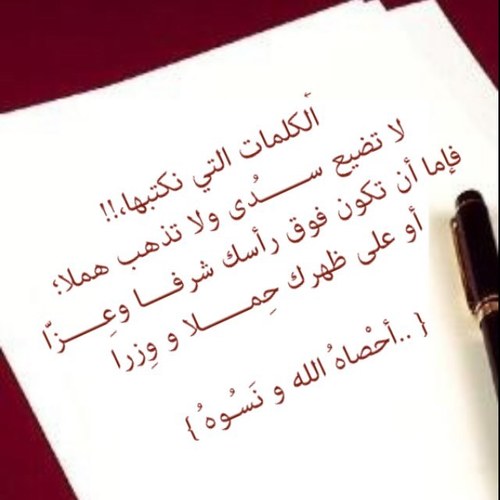 ٱلكلمات التي نكتبها،!!
لا تضيع ســـــــدُى ولا تذهب هملا؛
فإما أن تكون فوق رأسك شرفـــا وعِـــــزّا
أو على ظهرك حِمــــــلا و وِزرا
{ ..أحْصاهُ الله و نَسُوهُ }